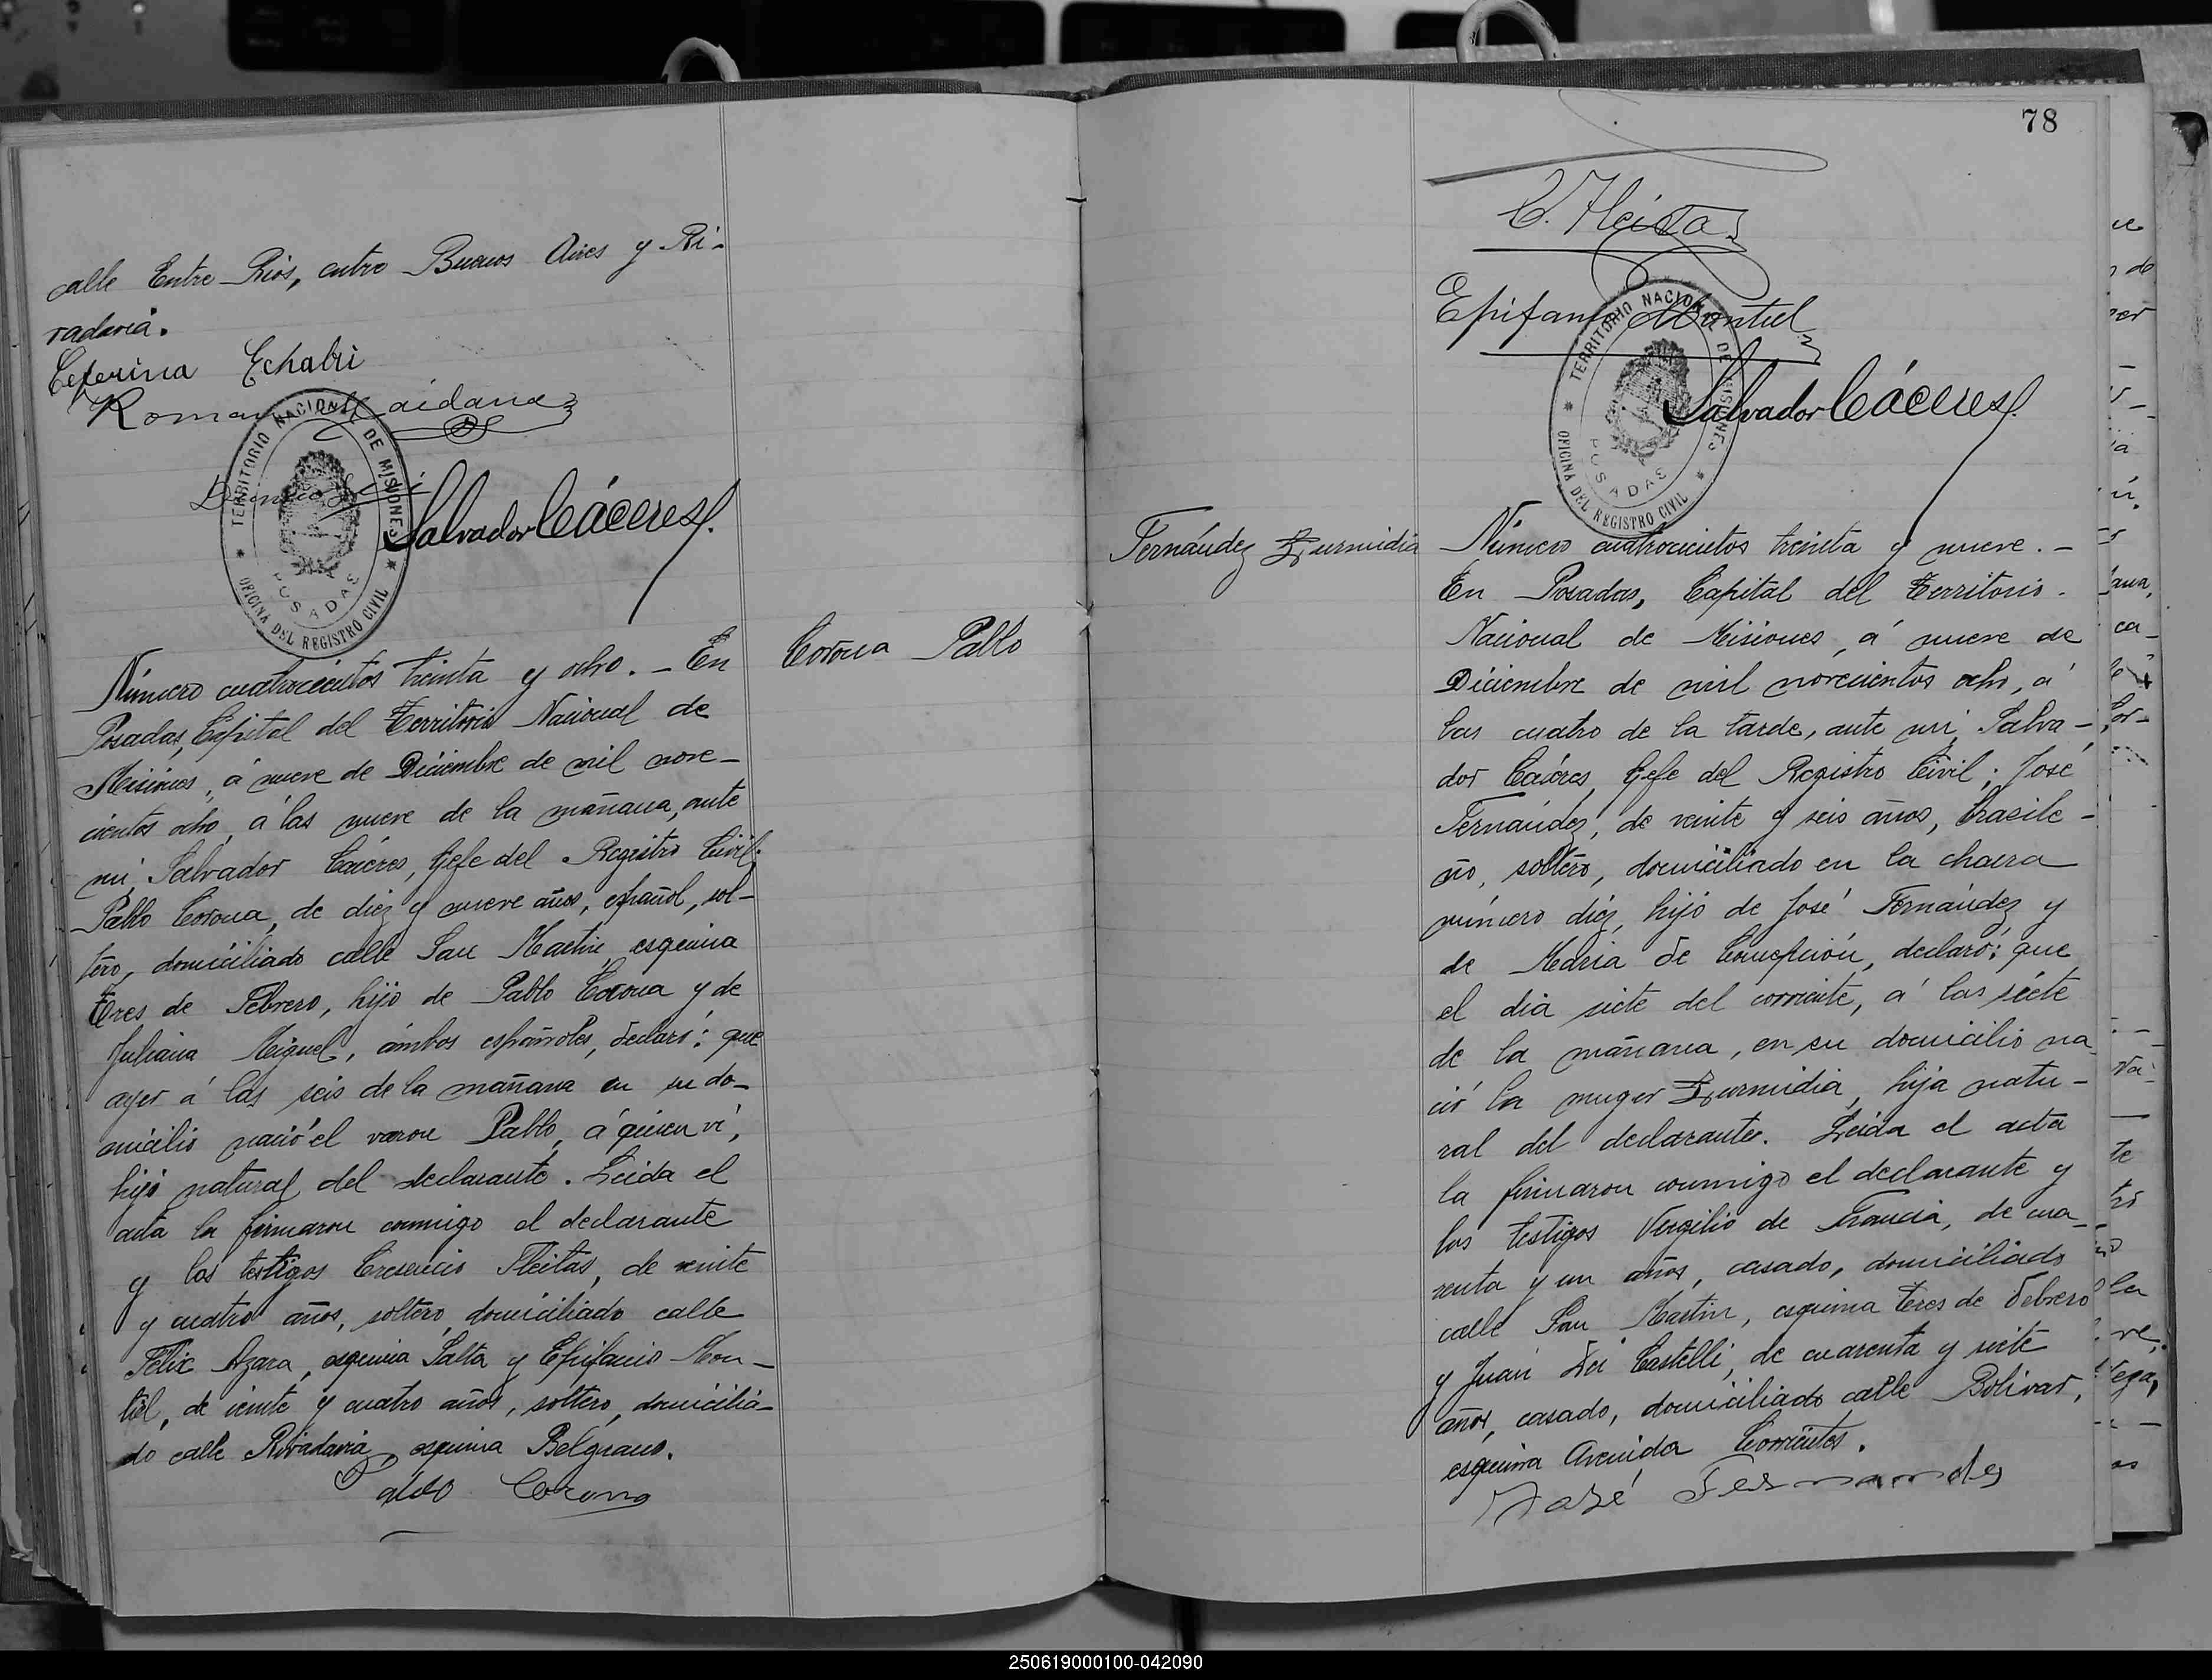 calle Entre Rios, entre Buenos Aires y Ri-
vadavia.
Ceferina Echabri
Roman
TERRITORIO NACIONAL DE MISIONES
POSADAS
OFICINA DEL REGISTRO CIVIL
Salvador Cáceres.
Corona Pablo
Número cuatrocientos treinta y ocho. - En
Posadas, Capital del Territorio Nacional de
Misiones, á nueve de Diciembre de mil nove-
cientos ocho, á las nueve de la mañana, ante
mi, Salvador Cáceres, Gefe del Registro Civil;
Pablo Corona, de diez y nueve años, español, sol-
tero, domiciliado calle San Martin, esquina
Tres de Febrero, hijo de Pablo Corona y de
Juliana Miguel, ámbos españoles, declaró: que
ayer á las seis de la mañana en su do-
micilio nació el varon Pablo, á quien vi,
hijo natural del declarante. Leida el
acta la firmaron conmigo el declarante
y los testigos Cresencio Fleitas, de veinte
y cuatro años, soltero, domiciliado calle
Félix Azara, esquina Salta y Epifanio Mon-
tiel, de veinte y cuatro años, soltero, domicilia-
do calle Rivadavia, esquina Belgrano.
Pablo Corona
78
C. Fleitas
Epifanio Montiel
TERRITORIO NACIONAL DE MISIONES
POSADAS
OFICINA DEL REGISTRO CIVIL
Salvador Cáceres.
Fernández Zurmidia
Número cuatrocientos treinta y nueve. -
En Posadas, Capital del Territorio
Nacional de Misiones, á nueve de
Diciembre de mil novecientos ocho, á
las cuatro de la tarde, ante mi, Salva-
dor Cáceres, Gefe del Registro Civil; José
Fernández, de veinte y seis años, brasile-
ño, soltero, domiciliado en la chacra
número diéz, hijo de José Fernández y
de Maria de Concepción, declaró: que
el dia siete del corriente, á las siete
de la mañana, en su domicilio na-
ció la muger Zurmidia, hija natu-
ral del declarante. Leida el acta
la firmaron conmigo el declarante y
los testigos Vergilio de Francia, de cua-
renta y un años, casado, domiciliado
calle San Martin, esquina Tres de Febrero
y Juan Dei Castelli, de cuarenta y siete
años, casado, domiciliado calle Bolivar,
esquina Avenida Corrientes.
José Fernandes
250619000100-042090